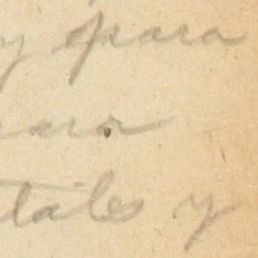 y para
para
tales y